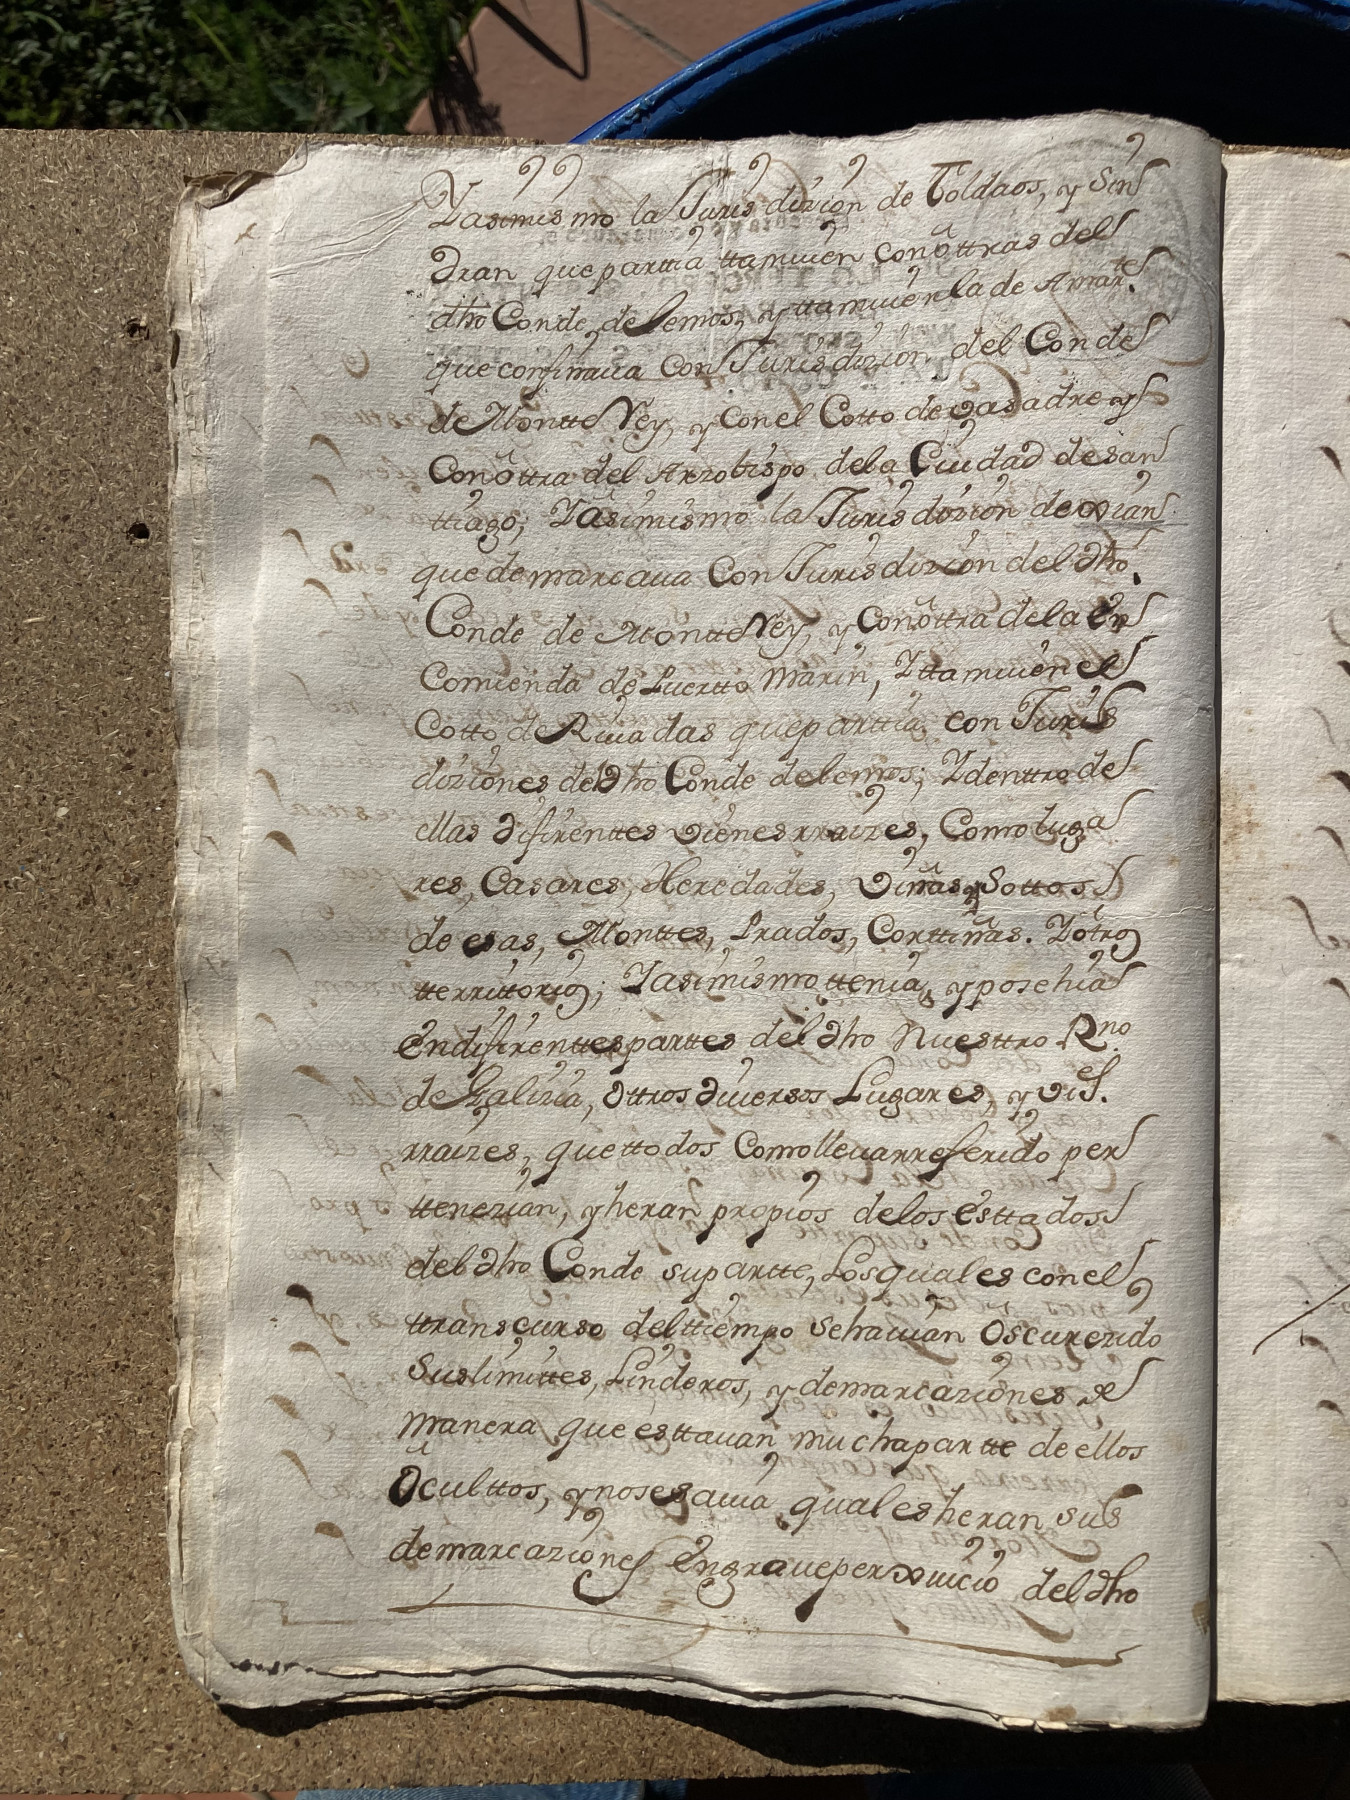 Yasimismo la Jurisdizion de Toldaos, y Sin
dran que parttia ttamuien con ottras del
dho Conde de lemos, y ttamuien la de Amarte
que confinaua Con Jurisdizion del Conde
de Montte Rey, y con el Cotto de Casadre y
Con ottra del Arzobispo dela Ciudad de san
ttiago; Yasimismo la Jurisdizion de oian
que demarcaua Con Jurisdizion del dho
Conde de Montte Rey, y Con ottra de la En
Comienda de Puertto Marin, Y ttamuien el
Cotto de Riuadas que parttia con Juris
diziones del dho Conde de lemos; Y denttro de
ellas difirenttes vienes rraizes, Como luga
res, Casares, Heredades, viñas, y Sottos
de esas, Monttes, Prados, Corttiñas. Y otros
tterrittorios; Yasimismo ttenia, y posehia
En difirenttes parttes del dho Nuesttro Rno
de Galizia, ottros diuersos Lugares, y vis.
rraizes, que ttodos Como lleuar referido per
ttenezian, y heran propios de los esttados
del dho Conde su partte, Los quales con el
ttranscurso del ttiempo se hauian Oscurezido
Sus limittes, Linderos, y demarcaziones de
manera que esttauan mucha partte de ellos
Oculttos, y no se sauia quales heran sus
demarcaziones En graue perxuicio del dho